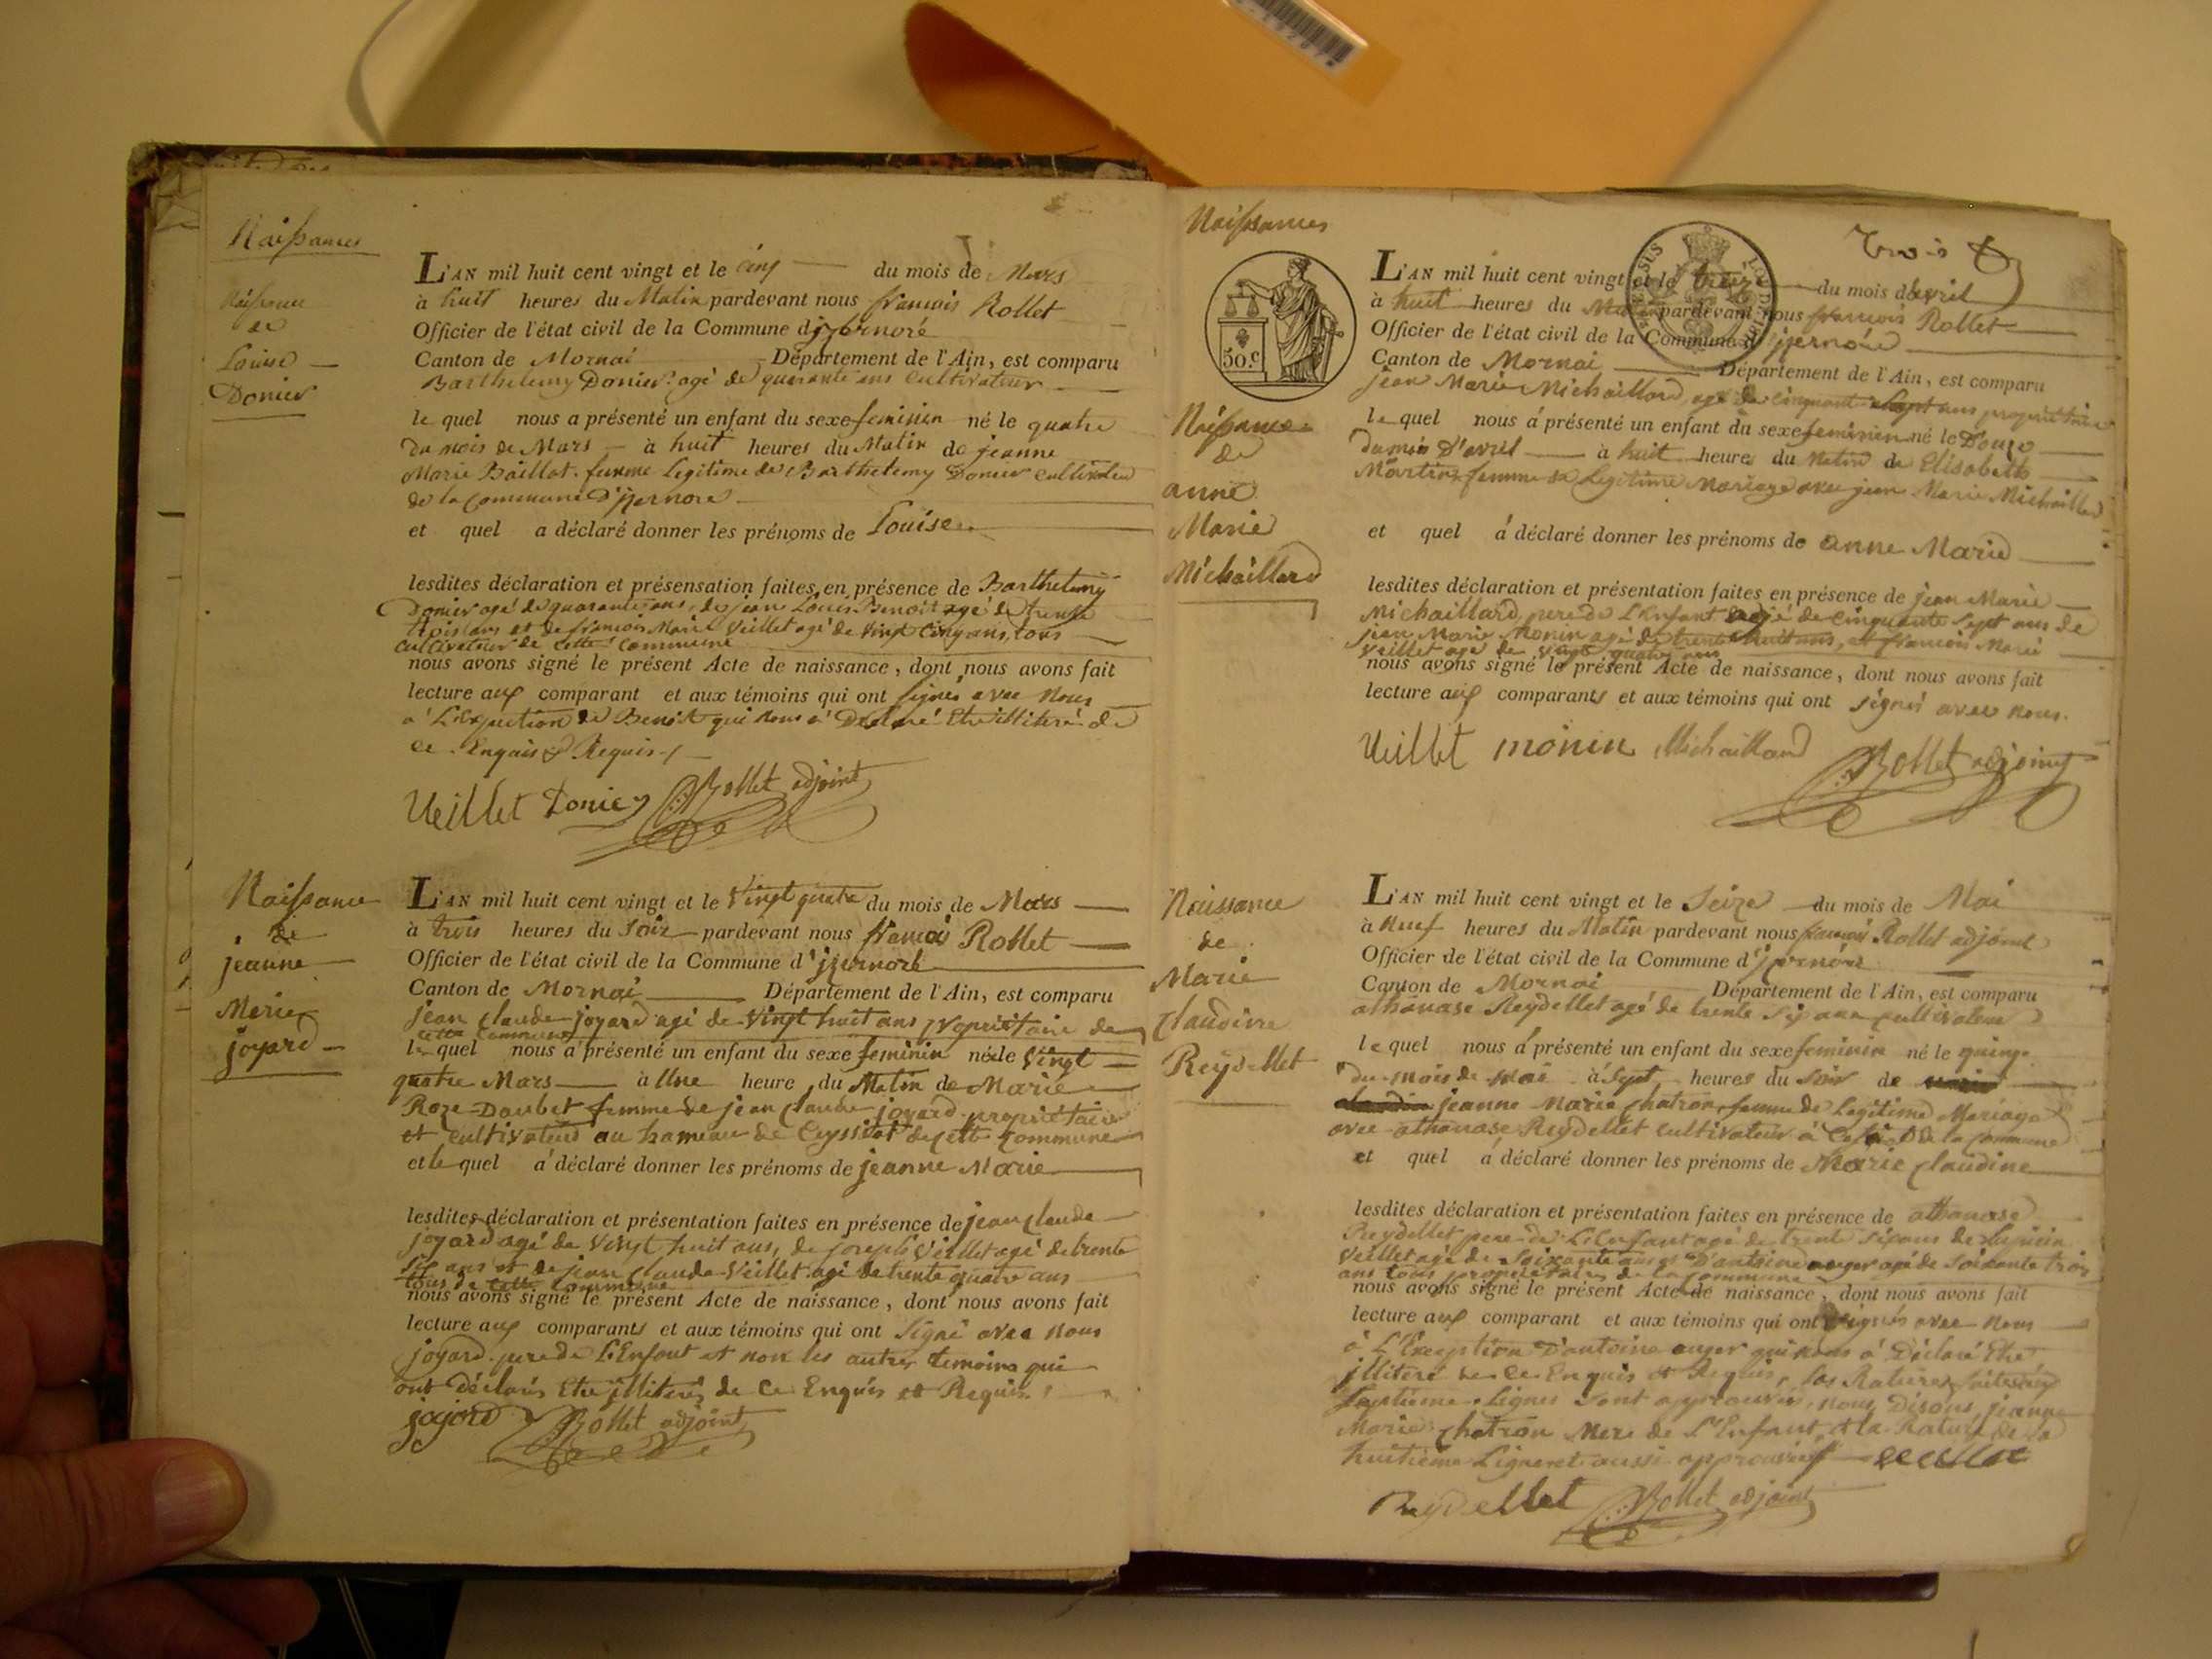 Naissances
Naissance
de
Louise
Donier
L'AN mil huit cent vingt et le cinq du mois de Mars
à huit heures du Matin pardevant nous francois Rollet
Officier de l'état civil de la Commune d'jzernore
Canton de Mornai Département de l'Ain, est comparu
Barthelemy Donier agé de quarante ans cultivateur
le quel nous a présenté un enfant du sexe feminin né le quatre
du mois de Mars à huit heures du Matin de jeanne
Marie Baillat femme Legitime de Barthelemy Donier cultivateur
de la Commune D'jzernore
et quel a déclaré donner les prénoms de Louise
lesdites déclaration et présensation faites en présence de Barthelemy
Donier agé de quarante ans, de jean Louis Benoit agé de trente
trois ans et de francois Marie Veillet agé de vingt cinq ans, tous
cultivateur de cette commune
nous avons signé le présent Acte de naissance, dont nous avons fait
lecture aux comparant et aux témoins qui ont signés avec nous
a L'Exception de Benoit qui nous a Déclaré Etre illiteré de
ce Enquis & Requis
Veillet Donier Rollet adjoint
Naissance
de
jeanne
Marie
joyard
L'AN mil huit cent vingt et le Vingt quatre du mois de Mars
à trois heures du Soir pardevant nous francois Rollet
Officier de l'état civil de la Commune d'jzernore
Canton de Mornai Département de l'Ain, est comparu
jean Claude joyard agé de vingt huit ans propriétaire de
cette commune
le quel nous a présenté un enfant du sexe feminin né le vingt
quatre Mars à Une heure du Matin de Marie
Roze Daubet femme de jean Claude joyard propriétaire
et cultivateur au hameau de Ceyssiat de cette Commune
et le quel a déclaré donner les prénoms de jeanne Marie
lesdites déclaration et présentation faites en présence de jean Claude
joyard agé de Vingt huit ans, de joseph Veillet agé de trente
six ans et de jean Claude Veillet agé de trente quatre ans
tous de cette commune
nous avons signé le présent Acte de naissance, dont nous avons fait
lecture aux comparants et aux témoins qui ont Signé avec nous
joyard pere de L'Enfant et non les autres temoins qui
ont déclarés Etre illiterés de ce Enquis et Requis
joyard Rollet adjoint
Naissances
Trois
50.c
Naissance
de
anne
Marie
Michaillard
L'AN mil huit cent vingt et le treize du mois d'avril
à huit heures du Matin pardevant nous francois Rollet
Officier de l'état civil de la Commune d'jzernore
Canton de Mornai Département de l'Ain, est comparu
jean Marie Michaillard agé de cinquante sept ans propriétaire
le quel nous á présenté un enfant du sexe feminin né le Douze
du mois D'avril à huit heures du Matin de Elisabeth
Martin femme de Legitime Mariage avec jean Marie Michaillard
et quel á déclaré donner les prénoms de anne Marie
lesdites déclaration et présentation faites en présence de jean Marie
Michaillard pere de L'Enfant agé de cinquante sept ans de
jean Marie Monin agé de trente huit ans, et francois Marie
Veillet agé de vingt quatre ans
nous avons signé le présent Acte de naissance, dont nous avons fait
lecture aux comparants et aux témoins qui ont signés avec nous.
Veillet monin Michaillard Rollet adjoint
Naissance
de
Marie
Claudine
Reydellet
L'AN mil huit cent vingt et le Seize du mois de Mai
à Neuf heures du Matin pardevant nous francois Rollet adjoint
Officier de l'état civil de la Commune d'jzernore
Canton de Mornai Département de l'Ain, est comparu
athanase Reydellet agé de trente six ans cultivateur
le quel nous á présenté un enfant du sexe feminin né le quinze
du mois de Mai à Sept heures du Soir de
jeanne Marie Chatron femme de Legitime Mariage
avec athanase Reydellet cultivateur à de la Commune
et quel á déclaré donner les prénoms de Marie Claudine
lesdites déclaration et présentation faites en présence de athanase
Reydellet pere de L'Enfant agé de trente six ans de
Veillet agé de Soixante ans et D'antoine auger agé de Soixante trois
ans tous propriétaires de la commune
nous avons signé le présent Acte de naissance, dont nous avons fait
lecture aux comparant et aux témoins qui ont signés avec nous
á L'Exception D'antoine auger qui nous á Déclaré Etre
illiteré de ce Enquis et Requis, les Ratures faites
Septieme Lignes sont approuvés, nous Disons jeanne
Marie Chatron Mere de L'Enfant, et la Rature de la
huitieme Ligne est aussi approuvés
Reydellet Rollet adjoint